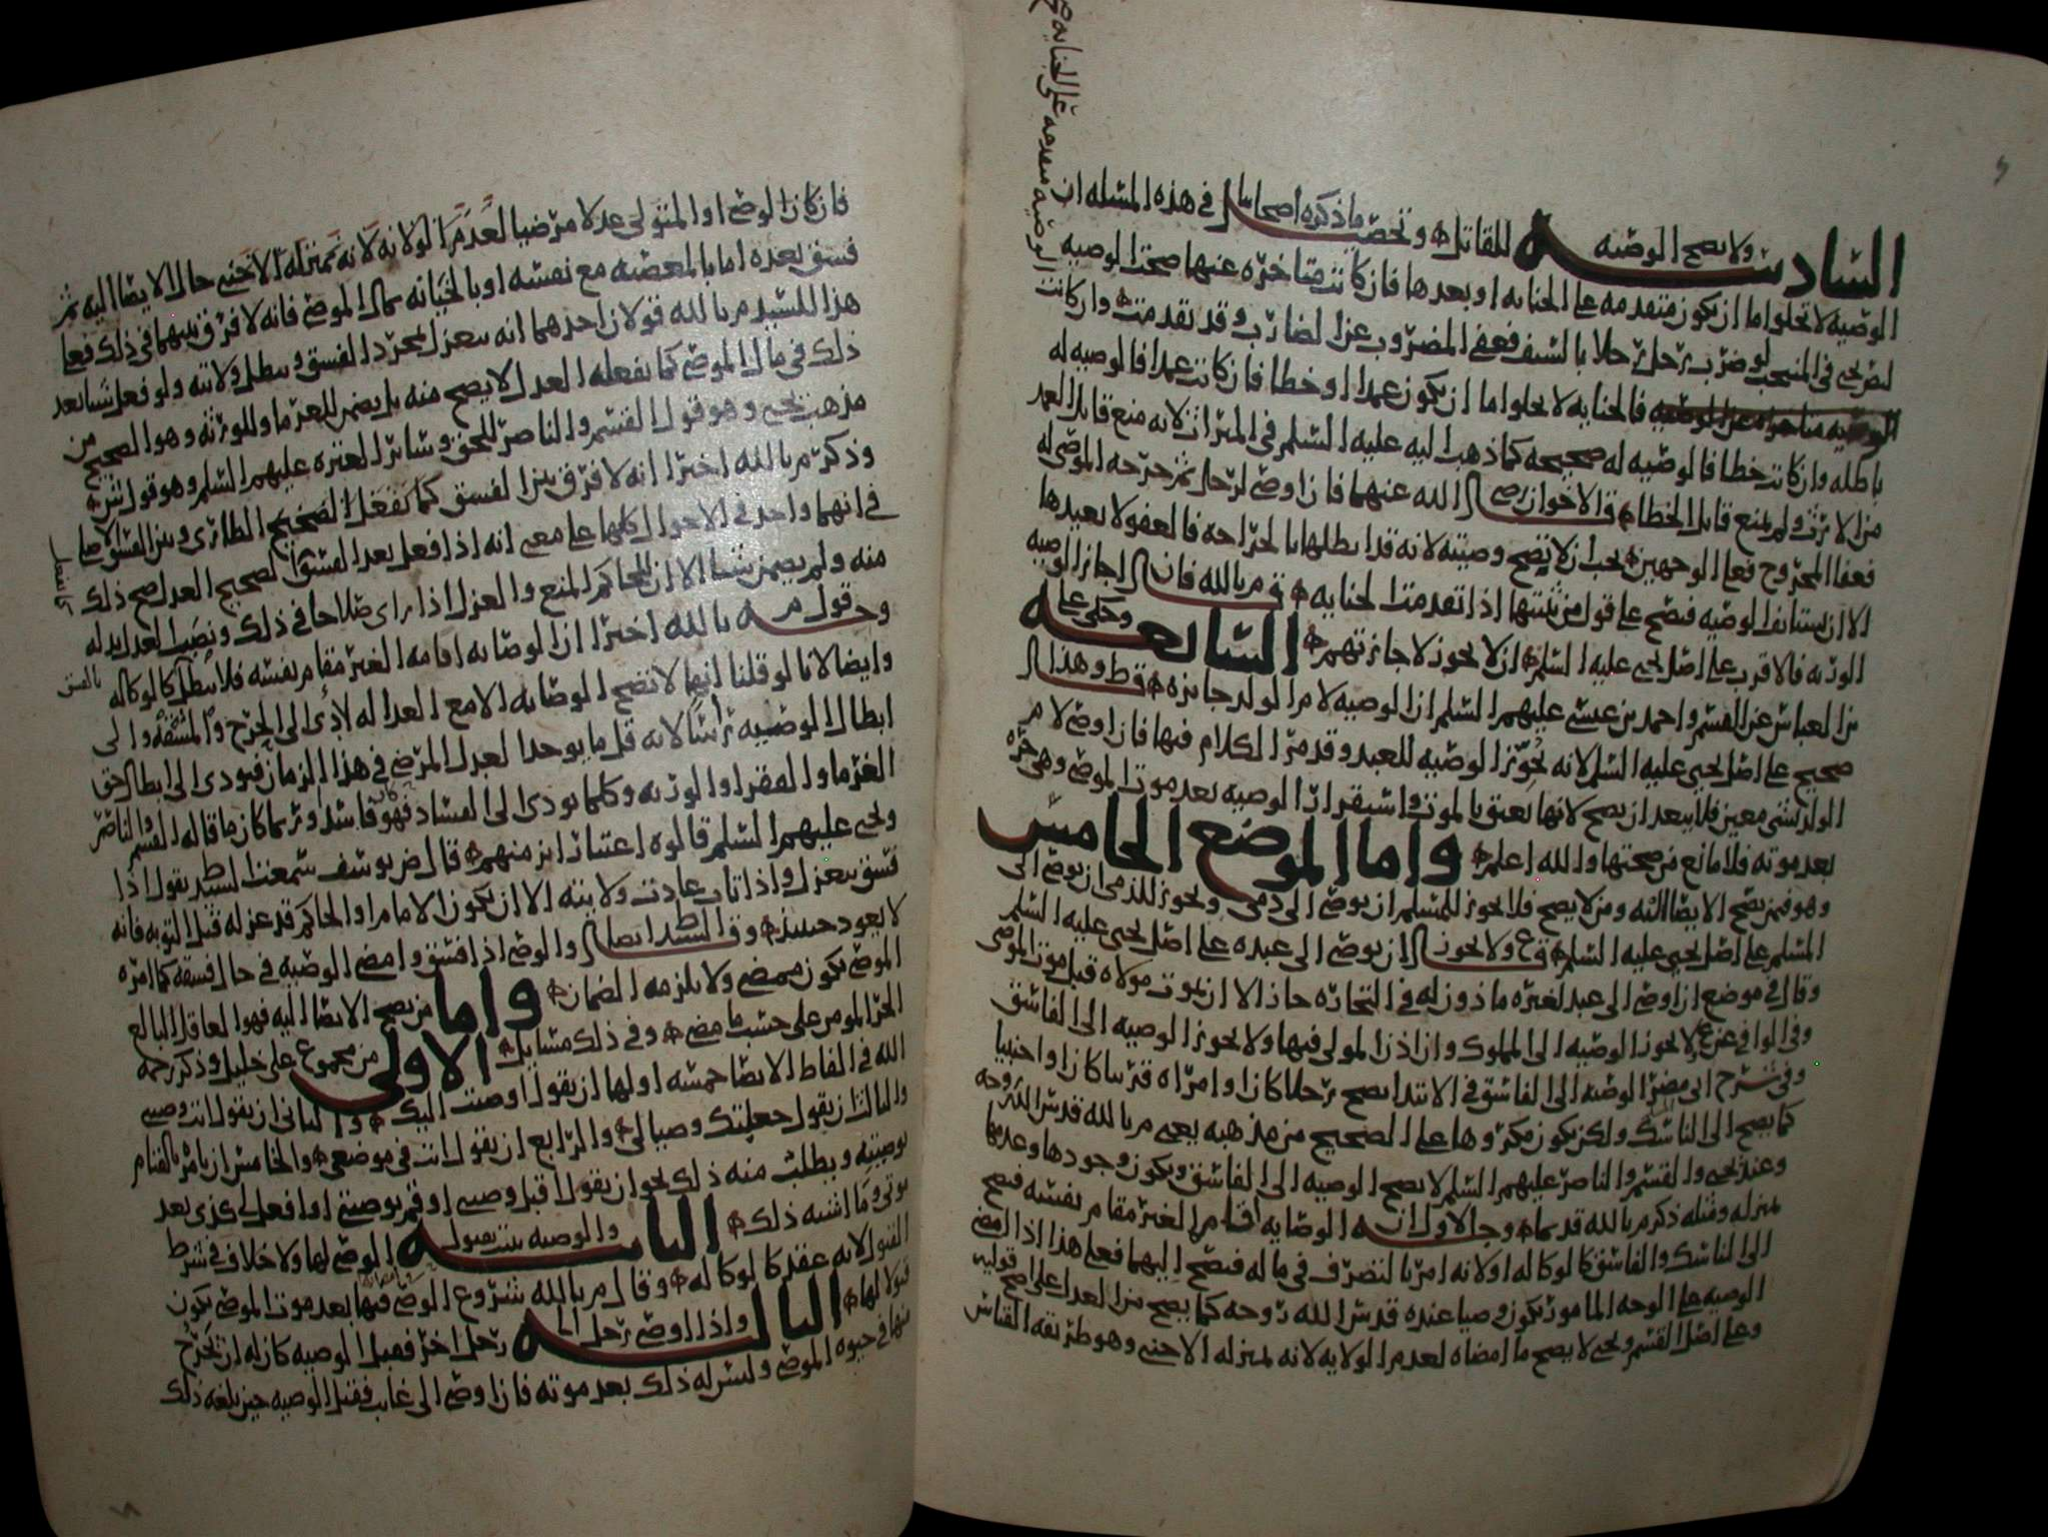 السادسه ولا تصح الوصيه للقاتل وتحصيل ما ذكره اصحابنا في هذه المسله ان
الوصيه لا تخلوا اما ان تكون متقدمه على الجنايه او بعدها فان كانت متاخره عنها صحت الوصيه
لو ضرب رجل رجلا بالسيف فعفى المضروب عن الضارب وقد تقدمت وان كانت
الوصيه متقدمه على الجنايه
فالجنايه لا تخلوا اما ان تكون عمدا او خطا فان كانت عمدا فالوصيه له
باطله وان كانت خطا فالوصيه له صحيحه كما ذهب اليه عليه السلم في الميراث لانه منع قاتل العمد
من الارث ولم يمنع قاتل الخطا قال الاخوان رضي الله عنهما فان اوصى لرجل ثم جرحه الموصى له
فعفا المجروح فعلى الوجهين يجب ان لا تصح وصيته لانه قد ابطلها بالجراحه فالعفو لا يعيدها
الا ان يستانف الوصيه فتصح على قول من يثبتها اذا تقدمت الجنايه م بالله فان اجاز الوصيه
الورثه فالاقرب على اصل يحيى عليه السلم ان لا يجوز لاجازتهم السابعه وحكى على
بن العباس عن القسم واحمد بن عيسى عليهم السلم ان الوصيه لام الولد جايزه ط وهذا
صحيح على اصل يحيى عليه السلم لانه يجوز الوصيه للعبد وقد مر الكلام فيها فان اوصى لام
الولد بشي معين فلا يبعد ان يصح لانها تعتق بالموت واستقرار الوصيه بعد موت الموصي وهي حره
بعد موته فلا مانع من صحتها والله اعلم واما الموضع الخامس
وهو فيمن يصح الايصا اليه ومن لا يصح فلا يجوز للمسلم ان يوصي الى ذمي ويجوز للذمي ان يوصي الى
المسلم على اصل يحيى عليه السلم ع ولا يجوز ان يوصي الى عبده على اصل يحيى عليه السلم
وقال في موضع ان اوصى الى عبد لغيره ماذون له في التجاره جاز الا ان يموت مولاه قبل موت الموصي
وفي الوافي عن ع لا يجوز الوصيه الى المملوك وان اذن المولى فيها ولا يجوز الوصيه الى الفاسق
وفي شرح ابي مضر الوصيه الى الفاسق في الابتدا يصح رجلا كان او امراه قريبا كان او اجنبيا
كما يصح الى الناسك ولكن يكون مكروها على الصحيح من مذهبه يعني م بالله قدس الله روحه
وعند يحيى والقسم والناصر عليهم السلم لا يصح الوصيه الى الفاسق ويكون وجودها وعدمها
بمنزله ومثله ذكر م بالله قديما وجه الاول ان الوصايه اقامه الغير مقام نفسه فيصح
الى الناسك والفاسق كالوكاله او لانه امر بالتصرف في ماله فيصح اليهما فعلى هذا اذا امضى
الوصيه على الوجه المامور يكون وصيا عنده قدس الله روحه كما يصح من العدل على اصح قوليه
وعلى اصل القسم ويحيى لا يصح ما امضاه لعدم الولايه لانه بمنزله الاجنبي وهو طريقه القياس
فان كان الوصي او المتولي عدلا مرضيا لعدم الولايه لانه بمنزله الاجنبي حال الايصا اليه ثم
فسق بعده اما بالمعصيه مع نفسه او بالخيانه بمال الموصي فانه لا فرق بينهما في ذلك فعلى
هذا للسيد م بالله قولان احدهما انه ينعزل بمجرد الفسق وتبطل ولايته ولو فعل شيا بعد
ذلك في مال الموصي كما يفعله العدل لا يصح منه بل يضمن للغرما وللورثه وهو الصحيح من
مذهب يحيى وهو قول القسم والناصر للحق وسائر العتره عليهم السلم وهو قول ش
وذكر م بالله اخيرا انه لا فرق بين الفسق الطارئ وبين الفسق الاصلي
في انهما واحد في الاحوال كلها على معنى انه اذا فعل بعد الفسق كما يفعل الصحيح العدل صح ذلك
منه ولم يضمن شيا الا ان للحاكم المنع والعزل اذا راى صلاحا في ذلك ونصب العدل بدله
وجه قول م بالله اخيرا ان الوصايه اقامه الغير مقام نفسه فلا تبطل كالوكاله بالفسق
وايضا لانا لو قلنا انها لا تصح الوصايه الا مع العداله لادى الى الحرج والمشقه والى
ابطال الوصيه راسا لانه قل ما يوجد العدل المرضي في هذا الزمان فيودي الى ابطال حق
الغرما والفقرا والورثه وكلما يودي الى الفساد فهو فاسد وربما كان ما قاله القسم والناصر
ويحيى عليهم السلم قالوه اعتبارا بزمنهم قال ض يوسف سمعنا السيد ط يقول اذا
فسق ينعزل واذا تاب عادت ولايته الا ان يكون الامام او الحاكم قد عزله قبل التوبه فانه
لا يعود حينئذ وقال السيد ط ايضا والوصي اذا فسق وامضى الوصيه في حال فسقه كما امره
الموصي يكون ممضى ولا يلزمه الضمان واما من يصح الايصا اليه فهو العاقل البالغ
الحر المومن على حسب ما مضى وفي ذلك مسايل الاولى من مجموع علي خليل وذكر رحمه
الله في الفاظ الايصا خمسه اولها ان يقول اوصيت اليك والثاني ان يقول انت وصيي
والثالث ان يقول جعلتك وصيا لي والرابع ان يقول انت في موضعي والخامس ان يامر بالقيام
بوصيته ويطلب منه ذلك نحو ان يقول اقبل وصيتي او قم بوصيتي او افعل لي كذى بعد
موتي وما اشبه ذلك الثانيه والوصيه تثبت بقبول الموصى لها ولا خلاف في شرط
القبول لانه عقد كالوكاله وقال م بالله شروع الوصي فيها بعد موت الموصي يكون
قبولا لها الثالثه واذا اوصى رجل الى رجل اخر فقبل الوصيه كان له ان يخرج
منها في حيوه الموصي وليس له ذلك بعد موته فان اوصى الى غايب فقبل الوصيه حين بلغه ذلك